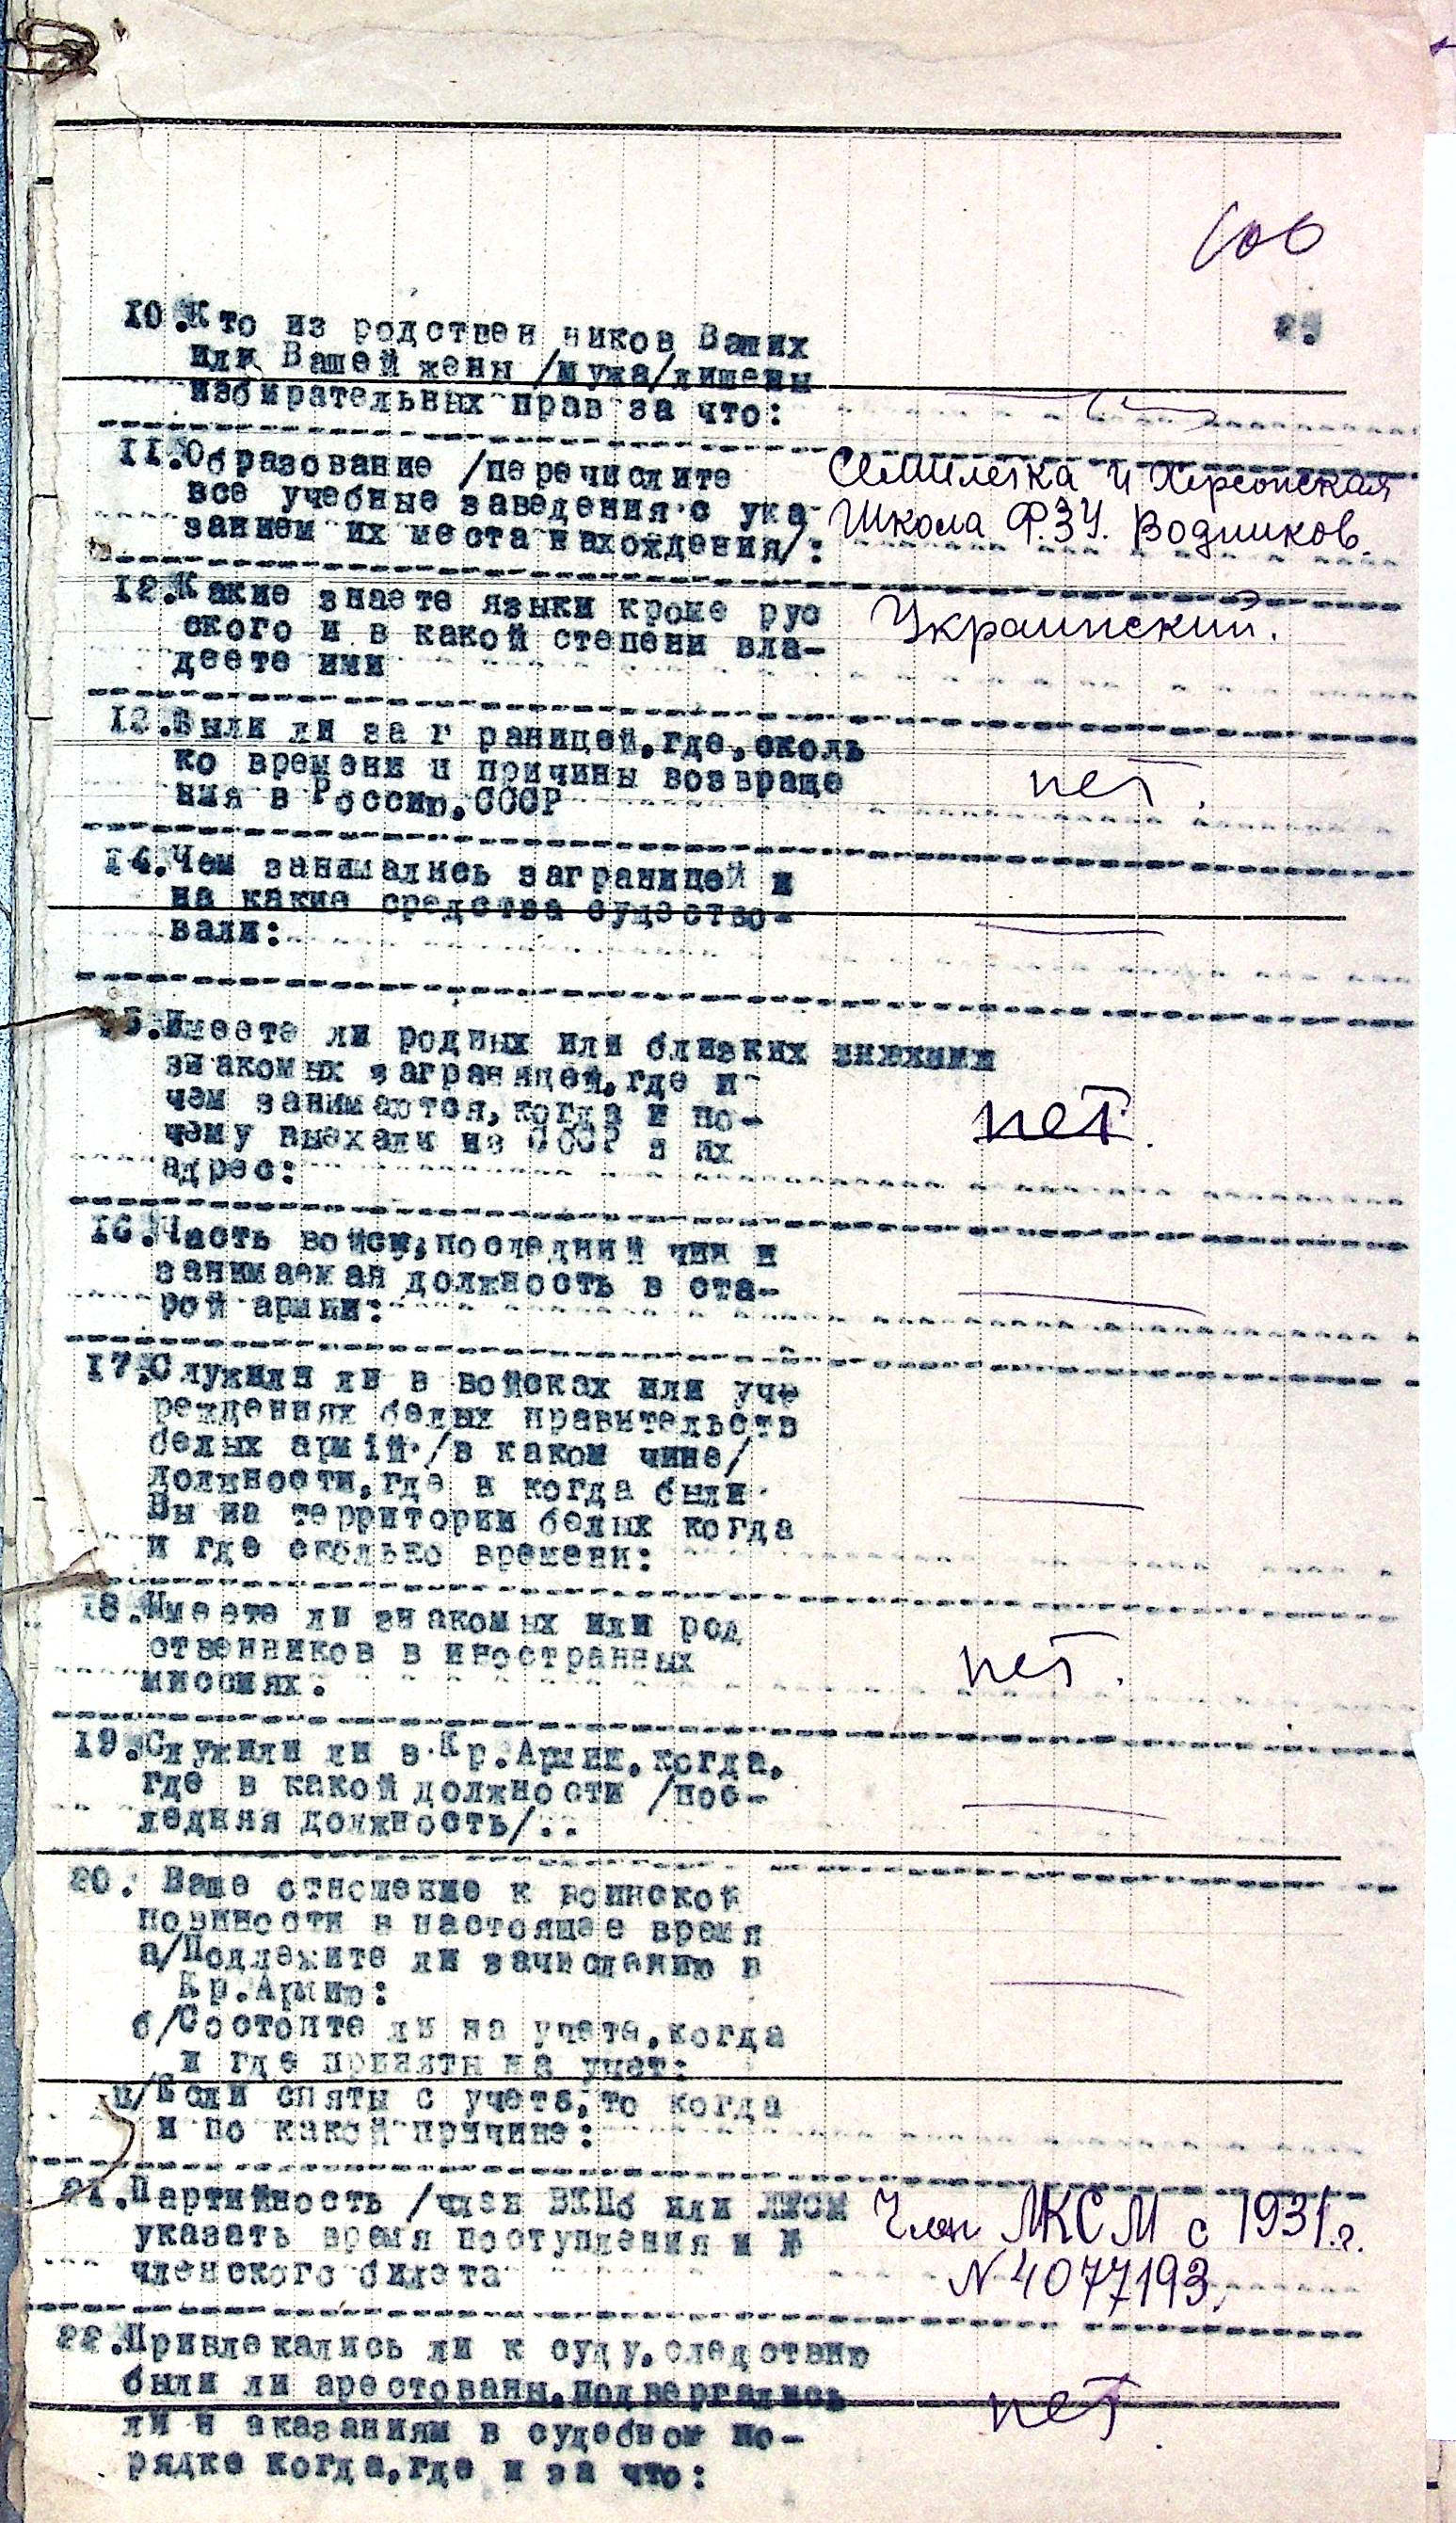 2.
10.Кто из родствен ников Ваших
или Вашей жены /мужа/лишены
избирательных прав за что:
11.Образование /перечислите
все учебные заведения с ука-
занием их места нахождения/:
Семилетка и Херсонская
Школа Ф.З.У. Водников.
12.Какие знаете языки кроме рус
ского и в какой степени вла-
деете ими
Украинский.
13.Были ли за г раницей,где,сколь
ко времени и причины возвраще
ния в Россию,СССР
нет.
14.Чем занимались заграницей и
на какие средства существо-
вали:
15.Имеете ли родных или близких
знакомых заграницей,где и
чем занимаются,когда и по-
чему выехали из СССР и их
адрес:
нет.
16.Часть войск,последний чин и
занимаемая должность в ста-
рой армии:
17.Служили ли в войсках или уч
реждениях белых правительств
белых армій /в каком чине/
должности,где и когда были
Вы на территории белых когда
и где сколько времени:
18.Имеете ли знакомых или род
ственников в иностранных
миссиях:
нет.
19.Служили ли в Кр.Армии,когда,
где в какой должности /пос-
ледняя должность/..
20. Ваше отношение к воинской
повиности в настоящее время
а/Подлежите ли зачислению в
Кр.Армию:
б/Состоите ли на учете,когда
и где приняты на учет:
в/Если сняты с учета,то когда
и по какой причине:
21.Партийность /член ВКПб или ЛКСМ
указать время поступления и №
членского билета
Член ЛКСМ с 1931.г.
N 4077193.
22.Привлекались ли к суду,следствию
были ли арестованы,подвергались
ли н аказаниям в судебном по-
рядке когда,где и за что:
нет.